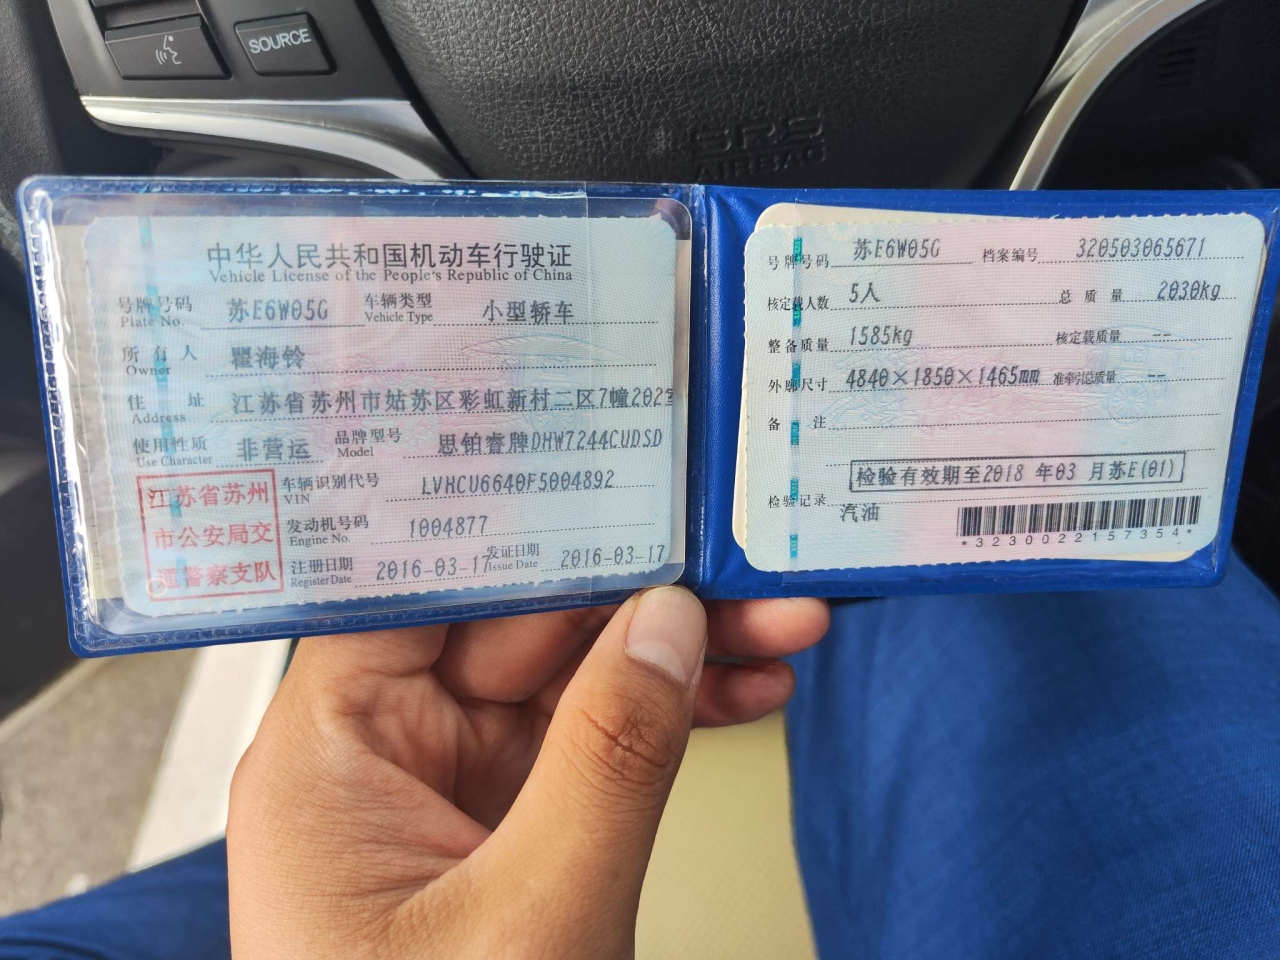 SOURCE
SRS
AIRBAG
中华人民共和国机动车行驶证
Vehicle License of the People's Republic of China
号牌号码 苏E6W05G 车辆类型 小型轿车
Plate No. Vehicle Type
所有人 瞿海铃
Owner
住址 江苏省苏州市姑苏区彩虹新村二区7幢202室
Address
使用性质 非营运 品牌型号 思铂睿牌DHW7244CUDSD
Use Character Model
江苏省苏州
市公安局交
通警察支队
车辆识别代号 LVHCU6640F5004892
VIN
发动机号码 1004877
Engine No.
注册日期 2016-03-17 发证日期 2016-03-17
Register Date Issue Date
号牌号码 苏E6W05G 档案编号 320503065671
核定载人数 5人 总质量 2030kg
整备质量 1585kg 核定载质量 --
外廓尺寸 4840×1850×1465mm 准牵引总质量 --
备注
检验有效期至2018 年03 月苏E(01)
检验记录
汽油
*3230022157354*